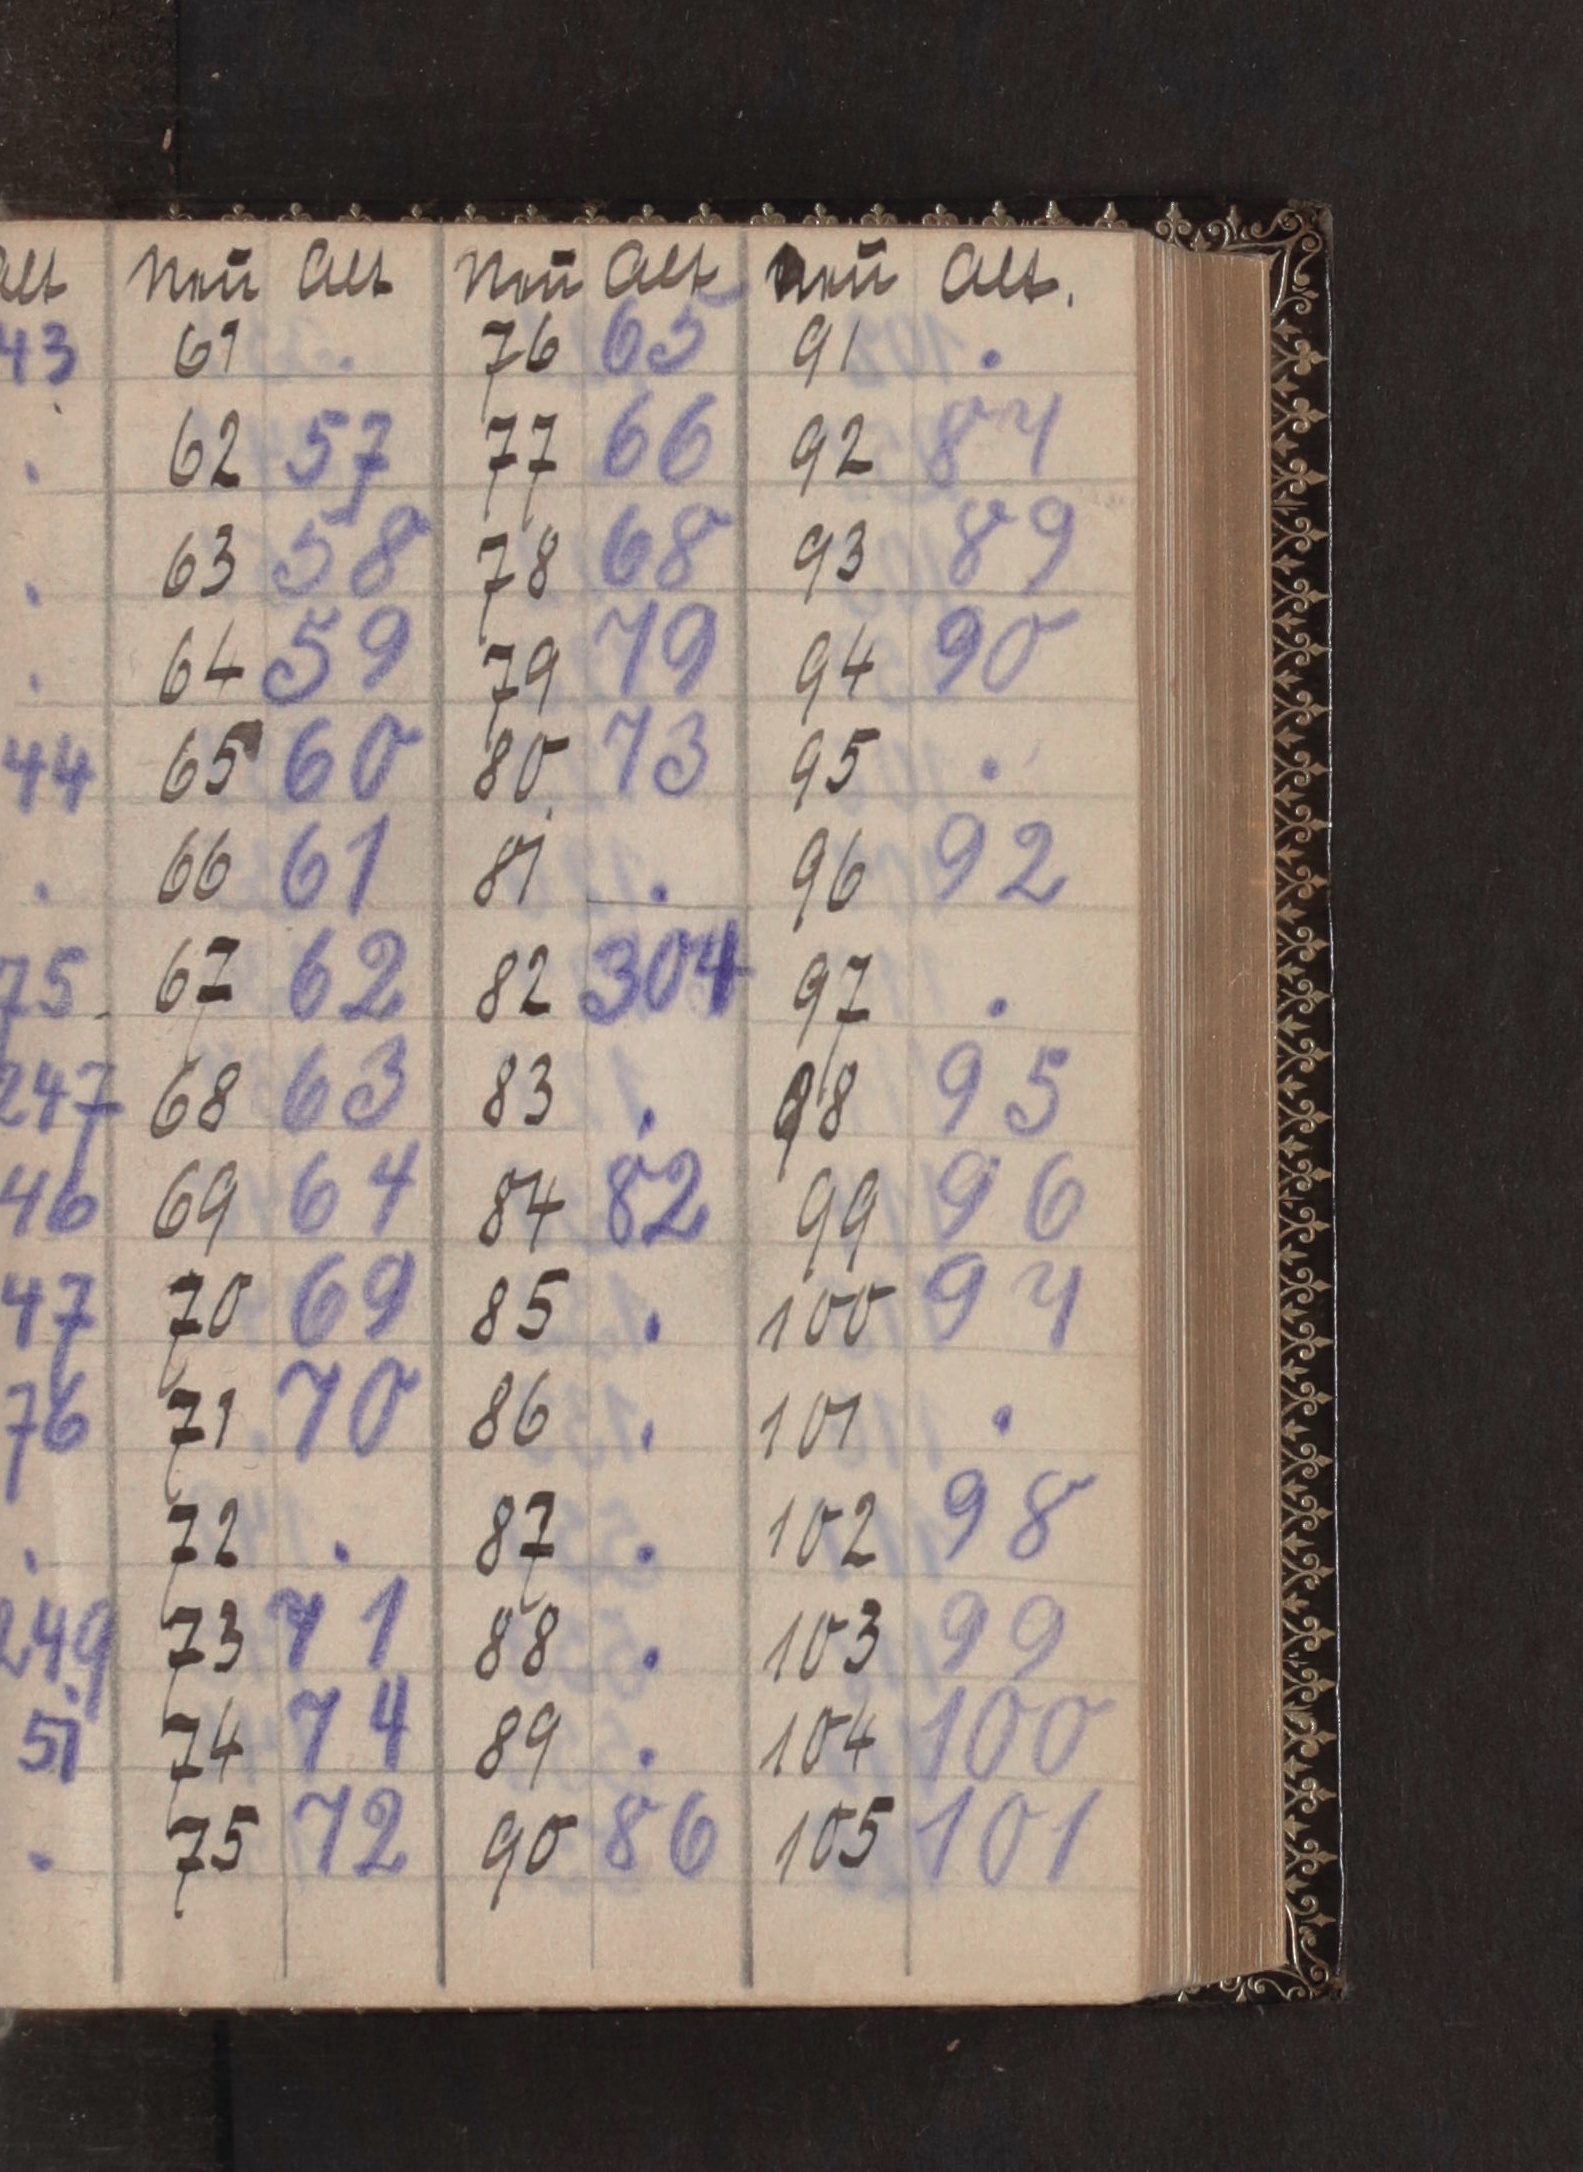 Alt Neū Alt Neū Alt Neū Alt.
43 61 . 76 65 91 .
. 62 57 77 66 92 84
. 63 58 78 68 93 89
. 64 59 79 79 94 90
44 65 60 80 73 95 .
. 66 61 81 . 96 92
75 67 62 82 304 97 .
247 68 63 83 . 98 95
46 69 64 84 82 99 96
47 70 69 85 . 100 94
76 71 70 86 . 101 .
. 72 . 87 . 102 98
249 73 71 88 . 103 99
51 74 74 89 . 104 100
. 75 72 90 86 105 101